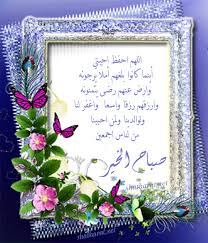 اللهم احفظ احبتي
أينما كانوا بلغهم أملا يرجونه
وارض عنهم رضى يتمنونه
وارزقهم رزقا واسعا واغفر لنا
ولوالدينا ولمن احببنا
من الناس اجمعين
صباح الخير